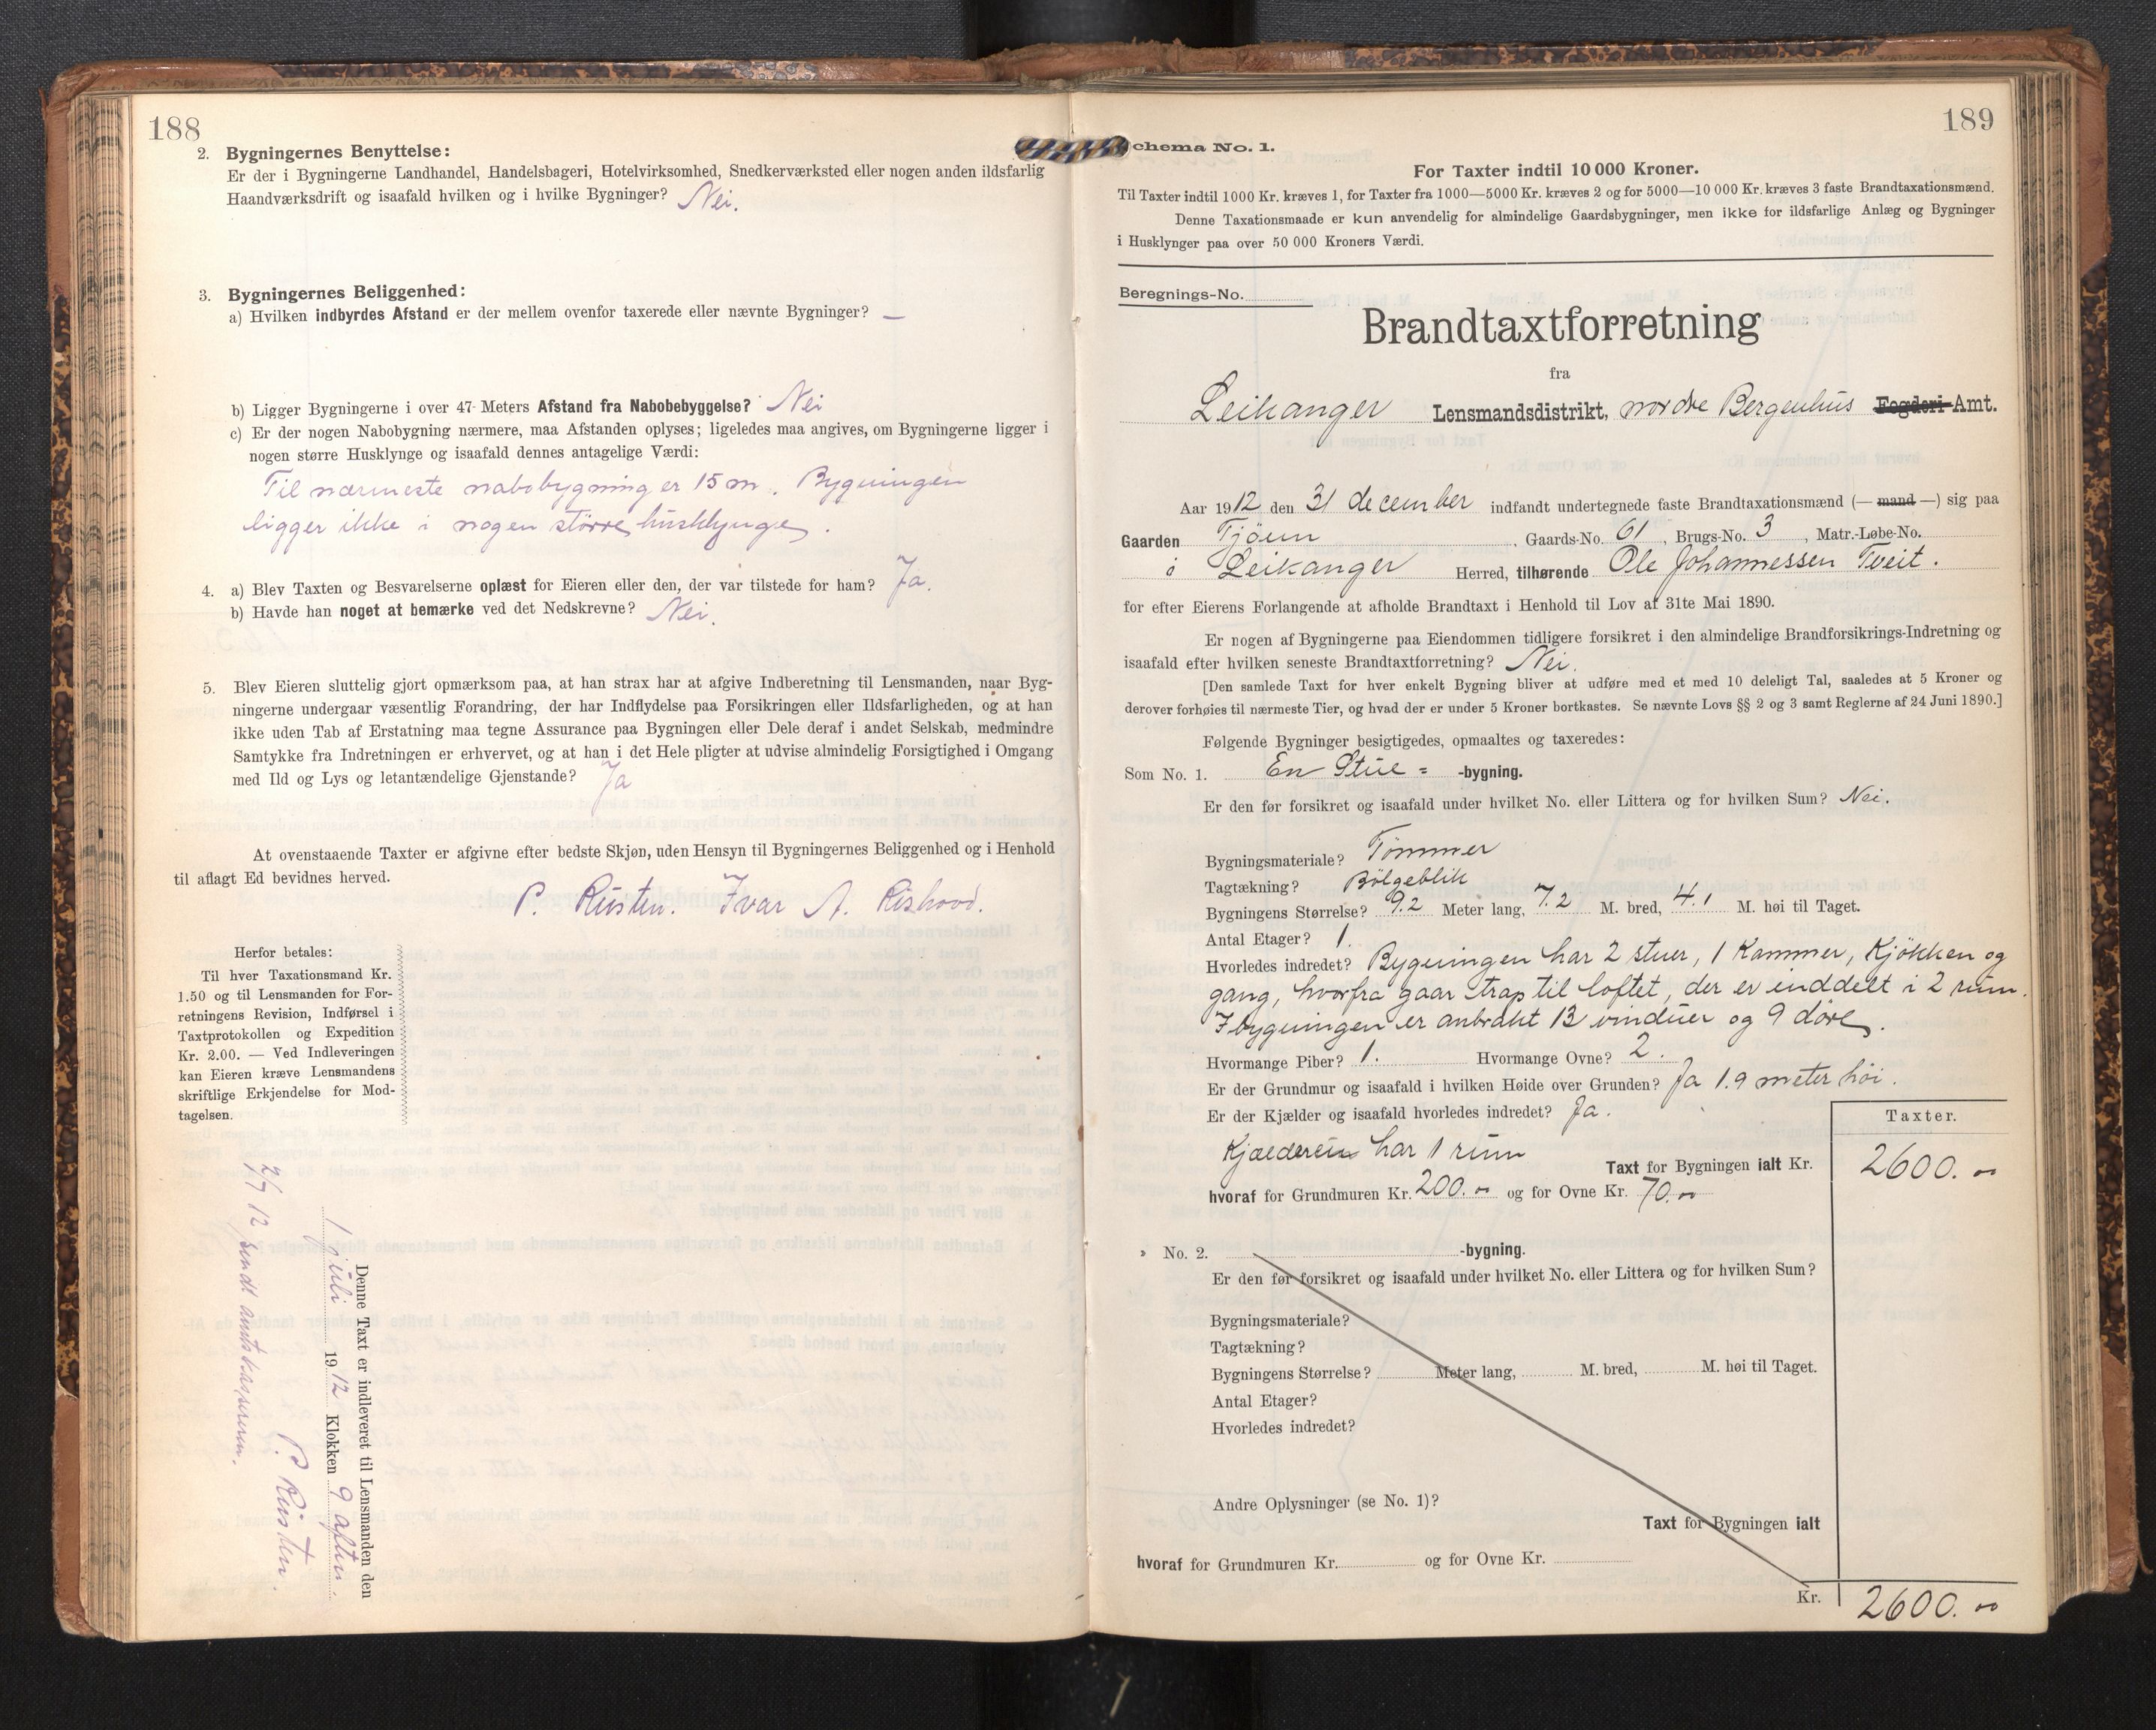 188
2. Bygningernes Benyttelse:
Er der i Bygningerne Landhandel, Handelsbageri, Hotelvirksomhed, Snedkerværksted eller nogen anden ildsfarlig
Haandværksdrift og isaafald hvilken og i hvilke Bygninger? Nei.
3. Bygningernes Beliggenhed:
a) Hvilken indbyrdes Afstand er der mellem ovenfor taxerede eller nævnte Bygninger? —
b) Ligger Bygningerne i over 47 Meters Afstand fra Nabobebyggelse? Nei
c) Er der nogen Nabobygning nærmere, maa Afstanden oplyses; ligeledes maa angives, om Bygningerne ligger i
nogen større Husklynge og isaafald dennes antagelige Værdi:
Til nærmeste nabobygning er 15 m. Bygningen
ligger ikke i nogen större husklynge.
4. a) Blev Taxten og Besvarelserne oplæst for Eieren eller den, der var tilstede for ham? Ja.
b) Havde han noget at bemærke ved det Nedskrevne? Nei.
5. Blev Eieren sluttelig gjort opmærksom paa, at han strax har at afgive Indberetning til Lensmanden, naar Byg-
ningerne undergaar væsentlig Forandring, der har Indflydelse paa Forsikringen eller Ildsfarligheden, og at han
ikke uden Tab af Erstatning maa tegne Assurance paa Bygningen eller Dele deraf i andet Selskab, medmindre
Samtykke fra Indretningen er erhvervet, og at han i det Hele pligter at udvise almindelig Forsigtighed i Omgang
med Ild og Lys og letantændelige Gjenstande? Ja
At ovenstaaende Taxter er afgivne efter bedste Skjøn, uden Hensyn til Bygningernes Beliggenhed og i Henhold
til aflagt Ed bevidnes herved.
P. Rusten. Ivar A. Rishovd.
Herfor betales:
Til hver Taxationsmand Kr.
1.50 og til Lensmanden for For-
retningens Revision, Indførsel i
Taxtprotokollen og Expedition
Kr. 2.00. — Ved Indleveringen
kan Eieren kræve Lensmandens
skriftlige Erkjendelse for Mod-
tagelsen.
Denne Taxt er indleveret til Lensmanden den
1 juli 1912 Klokken 9 aften.
P. Rusten.
2/7 12 sendt amtskasseren.
189
Schema No. 1.
For Taxter indtil 10 000 Kroner.
Til Taxter indtil 1000 Kr. kræves 1, for Taxter fra 1000—5000 Kr. kræves 2 og for 5000—10 000 Kr. kræves 3 faste Brandtaxationsmænd.
Denne Taxationsmaade er kun anvendelig for almindelige Gaardsbygninger, men ikke for ildsfarlige Anlæg og Bygninger
i Husklynger paa over 50 000 Kroners Værdi.
Beregnings-No.
Brandtaxtforretning
fra
Leikanger Lensmandsdistrikt, nordre Bergenhus Fogderi-Amt.
Aar 1912 den 31 december indfandt undertegnede faste Brandtaxationsmænd (— mand —) sig paa
Gaarden Tjöun, Gaards-No. 61, Brugs-No. 3, Matr.-Løbe-No.
i Leikanger Herred, tilhørende Ole Johannessen Tveit.
for efter Eierens Forlangende at afholde Brandtaxt i Henhold til Lov af 31te Mai 1890.
Er nogen af Bygningerne paa Eiendommen tidligere forsikret i den almindelige Brandforsikrings-Indretning og
isaafald efter hvilken seneste Brandtaxtforretning? Nei.
[Den samlede Taxt for hver enkelt Bygning bliver at udføre med et med 10 deleligt Tal, saaledes at 5 Kroner og
derover forhøies til nærmeste Tier, og hvad der er under 5 Kroner bortkastes. Se nævnte Lovs §§ 2 og 3 samt Reglerne af 24 Juni 1890.]
Følgende Bygninger besigtigedes, opmaaltes og taxeredes:
Som No. 1. En Stue = -bygning.
Er den før forsikret og isaafald under hvilket No. eller Littera og for hvilken Sum? Nei.
Bygningsmateriale? Tömmer
Tagtækning? Bölgeblik
Bygningens Størrelse? 9.2 Meter lang, 7.2 M. bred, 4.1 M. høi til Taget.
Antal Etager? 1.
Hvorledes indredet? Bygningen har 2 stuer, 1 Kammer, Kjökken og
gang, hvorfra gaar trap til loftet, der er inddelt i 2 rum.
I bygningen er anbrakt 13 vinduer og 9 döre.
Hvormange Piber? 1. Hvormange Ovne? 2.
Er der Grundmur og isaafald i hvilken Høide over Grunden? Ja 1.9 meter höi.
Er der Kjælder og isaafald hvorledes indredet? Ja.
Taxter.
Kjælderen har 1 rum
Taxt for Bygningen ialt Kr. 2600.00
hvoraf for Grundmuren Kr. 200.00 og for Ovne Kr. 70.00
» No. 2. -bygning.
Er den før forsikret og isaafald under hvilket No. eller Littera og for hvilken Sum?
Bygningsmateriale?
Tagtækning?
Bygningens Størrelse? Meter lang, M. bred, M. høi til Taget.
Antal Etager?
Hvorledes indredet?
Andre Oplysninger (se No. 1)?
Taxt for Bygningen ialt
hvoraf for Grundmuren Kr. og for Ovne Kr.
Kr. 2600.00